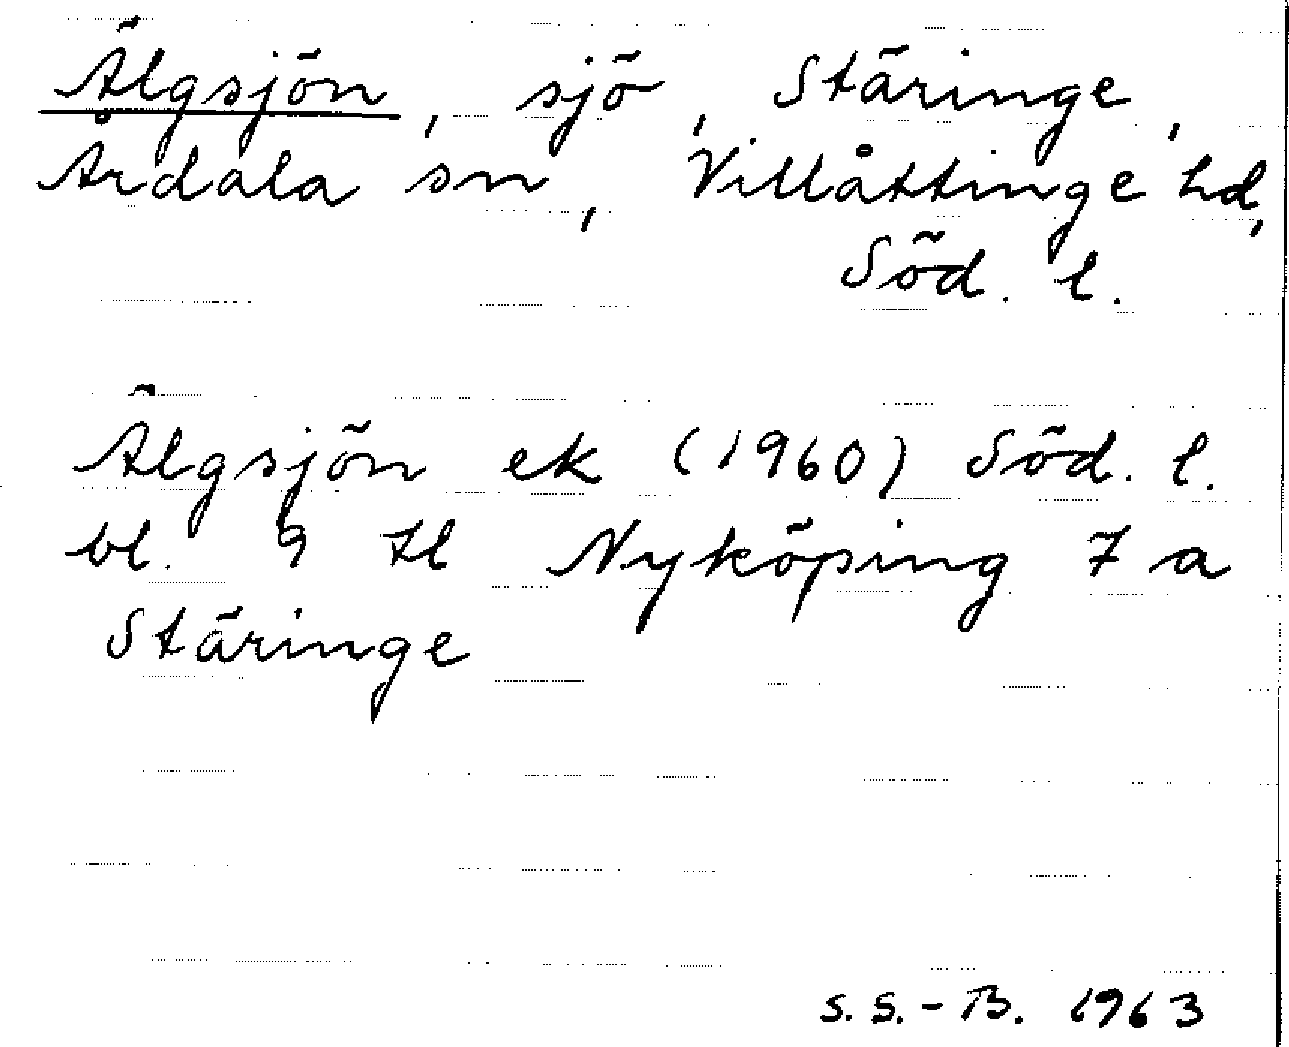 Älgsjön, sjö, Stäringe,
Årdala sn, Villåttinge hd,
Söd. l.
Älgsjön ek (1960) Söd. l.
bl. 9 H Nyköping 7 a
Stäringe
S. S.-B. 1963